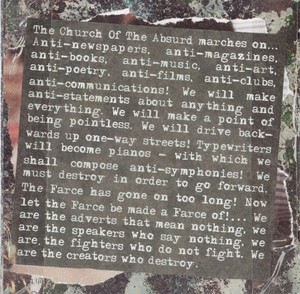 The Church Of The Absurd marches on...
Anti-newspapers, anti-magazines,
anti-books, anti-music, anti-art,
anti-poetry, anti-films, anti-clubs,
anti-communications! We will make
anti-statements about anything and
everything. We will make a point of
being pointless. We will drive back-
wards up one-way streets! Typewriters
will become pianos - with which we
shall compose anti-symphonies! We
must destroy in order to go forward.
The Farce has gone on too long! Now
let the Farce be made a Farce of!... We
are the adverts that mean nothing, we
are the speakers who say nothing, we
are, the fighters who do not fight. We
are the creators who destroy.